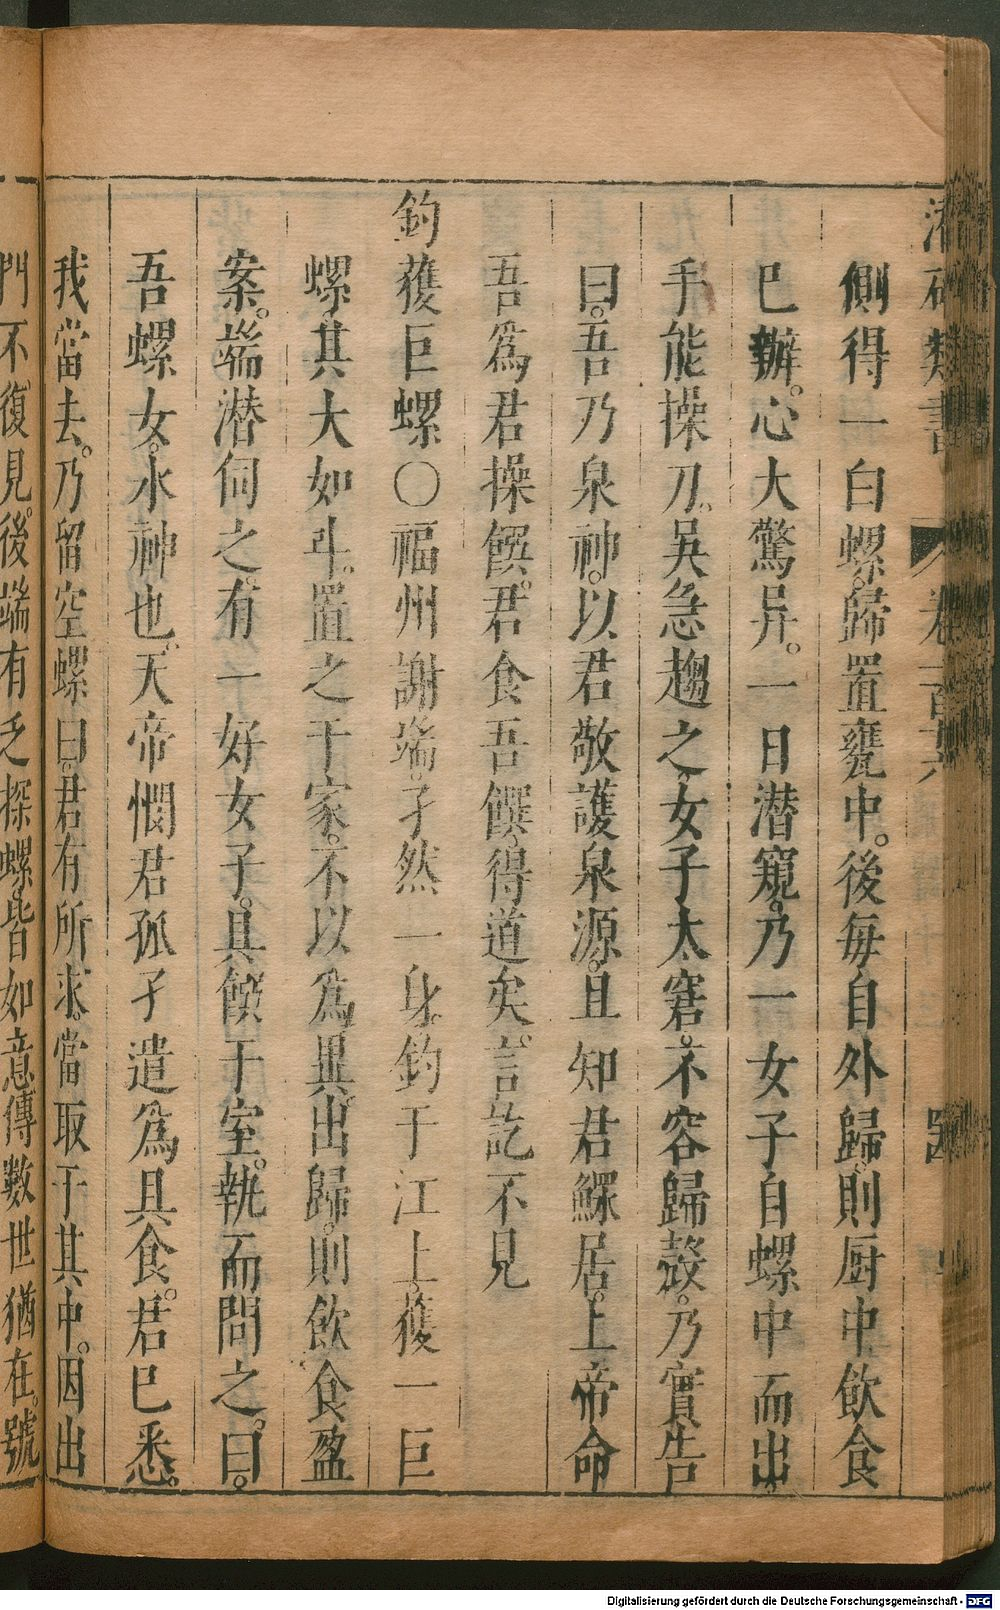 潛確類書 卷一百十六 四
側得一白螺。歸置甕中。後每自外歸。則厨中飲食
已辦。心大驚异。一日潜窺。乃一女子自螺中而出。
手能操刀。吳急趨之。女子太窘。不容歸殼。乃實告
曰。吾乃泉神。以君敬護泉源。且知君鰥居。上帝命
吾爲君操饌。君食吾饌。得道矣。言訖不見
釣獲巨螺○福州謝端。孑然一身。釣于江上。獲一巨
螺。其大如斗。置之于家。不以爲異。出歸。則飲食盈
案。端潜伺之。有一好女子。具饌于室。執而問之。曰。
吾螺女。水神也。天帝憫君孤孑遣爲具食。君已悉。
我當去。乃留空螺曰。君有所求。當取于其中。因出
門不復見。後端有乏探螺。皆如意。傳數世猶在。號
Digitalisierung gefördert durch die Deutsche Forschungsgemeinschaft - DFG